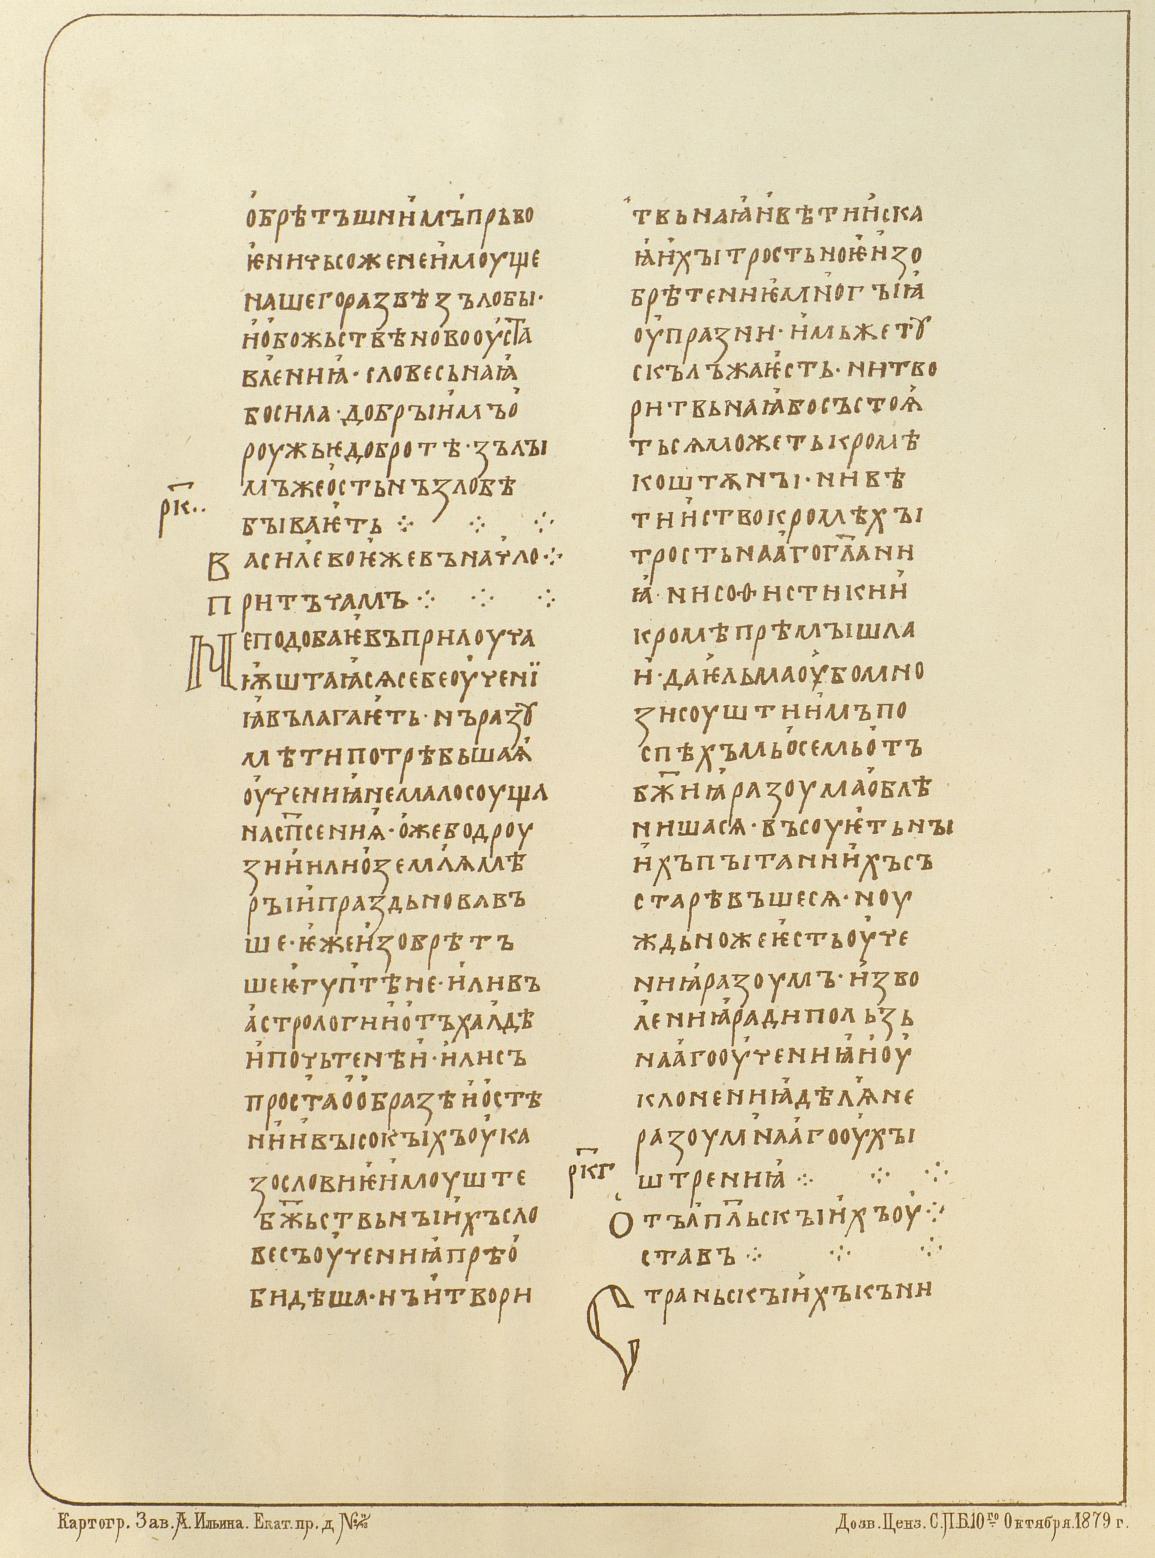 обрѣтъшнимъпрьво
ѥничьсоженеимоуще
нашегоразвѣзълобы·
нобожьствьновооуста
влениꙗ·словесьнаꙗ
босила·добрыимъо
роужьѥдобротѣ·зълы
мъжеостьнъзлобѣ
рк҃··
бываѥть ⁘ ⁘ ⁘
василевоѥжевъначло⁘
притъчамъ⁘ ⁘ ⁘
Неподобаѥвъприлоуча
ѭштаꙗсѧсебеоучені
ꙗвълагаѥть·нъразꙋ
мѣтипотрѣбьшаѧ
оучениꙗнемалосоуща
насп҃сенниѧ·ожебодроу
зниилиоземлѧмѣ
рыипраздьновавъ
ше·ѥжеизобрѣтъ
шеѥгуптѣне·иливъ
астрологииотъхалдѣ
ипочьтенѣи·илисъ
простаообразѣностѣ
нииивысокыхъоука
зословиѥимоуште
бж҃ьствьныихъсло
весъоучениꙗпрѣо
бидѣша·нъитвори
твьнаꙗивѣтииска
ꙗихытростьноѥизо
брѣтениѥмногыꙗ
оупразни·имьжетꙋ
скълъжаѥсть·нитво
ритвьнаꙗбосъстоѧ
тьсѧможетькромѣ
коштѫны·нивѣ
тииствокромѣхы
тростьнаагогл҃ани
ꙗ·нисофистикии
кромѣпрѣмышла
и·даѥльмаоубомно
зисоуштиимъпо
спѣхъмьосемьотъ
бж҃иꙗразоумаоблѣ
нишасѧ·въсоуѥтьны
ихъпытаниихъсъ
старѣвъшесѧ·ноу
ждьножеѥстьоуче
ниꙗразоумъ·изво
лениꙗрадипользь
наагооучениꙗиноу
клонениꙗдѣлѧне
разоумнаагооухы
штрениꙗ⁘ ⁘ ⁘
ркг҃
Отъап҃льскыихъоу⁘
ставъ⁘ ⁘ ⁘
Страньскыихъкъни
Картогр. Зав. А. Ильина. Екат. пр. д №
Дозв. Ценз. С.П.Б. 10го Октября. 1879 г.